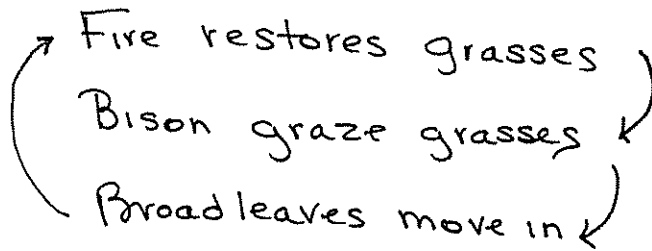 Fire restores grasses
Bison graze grasses
Broadleaves move in